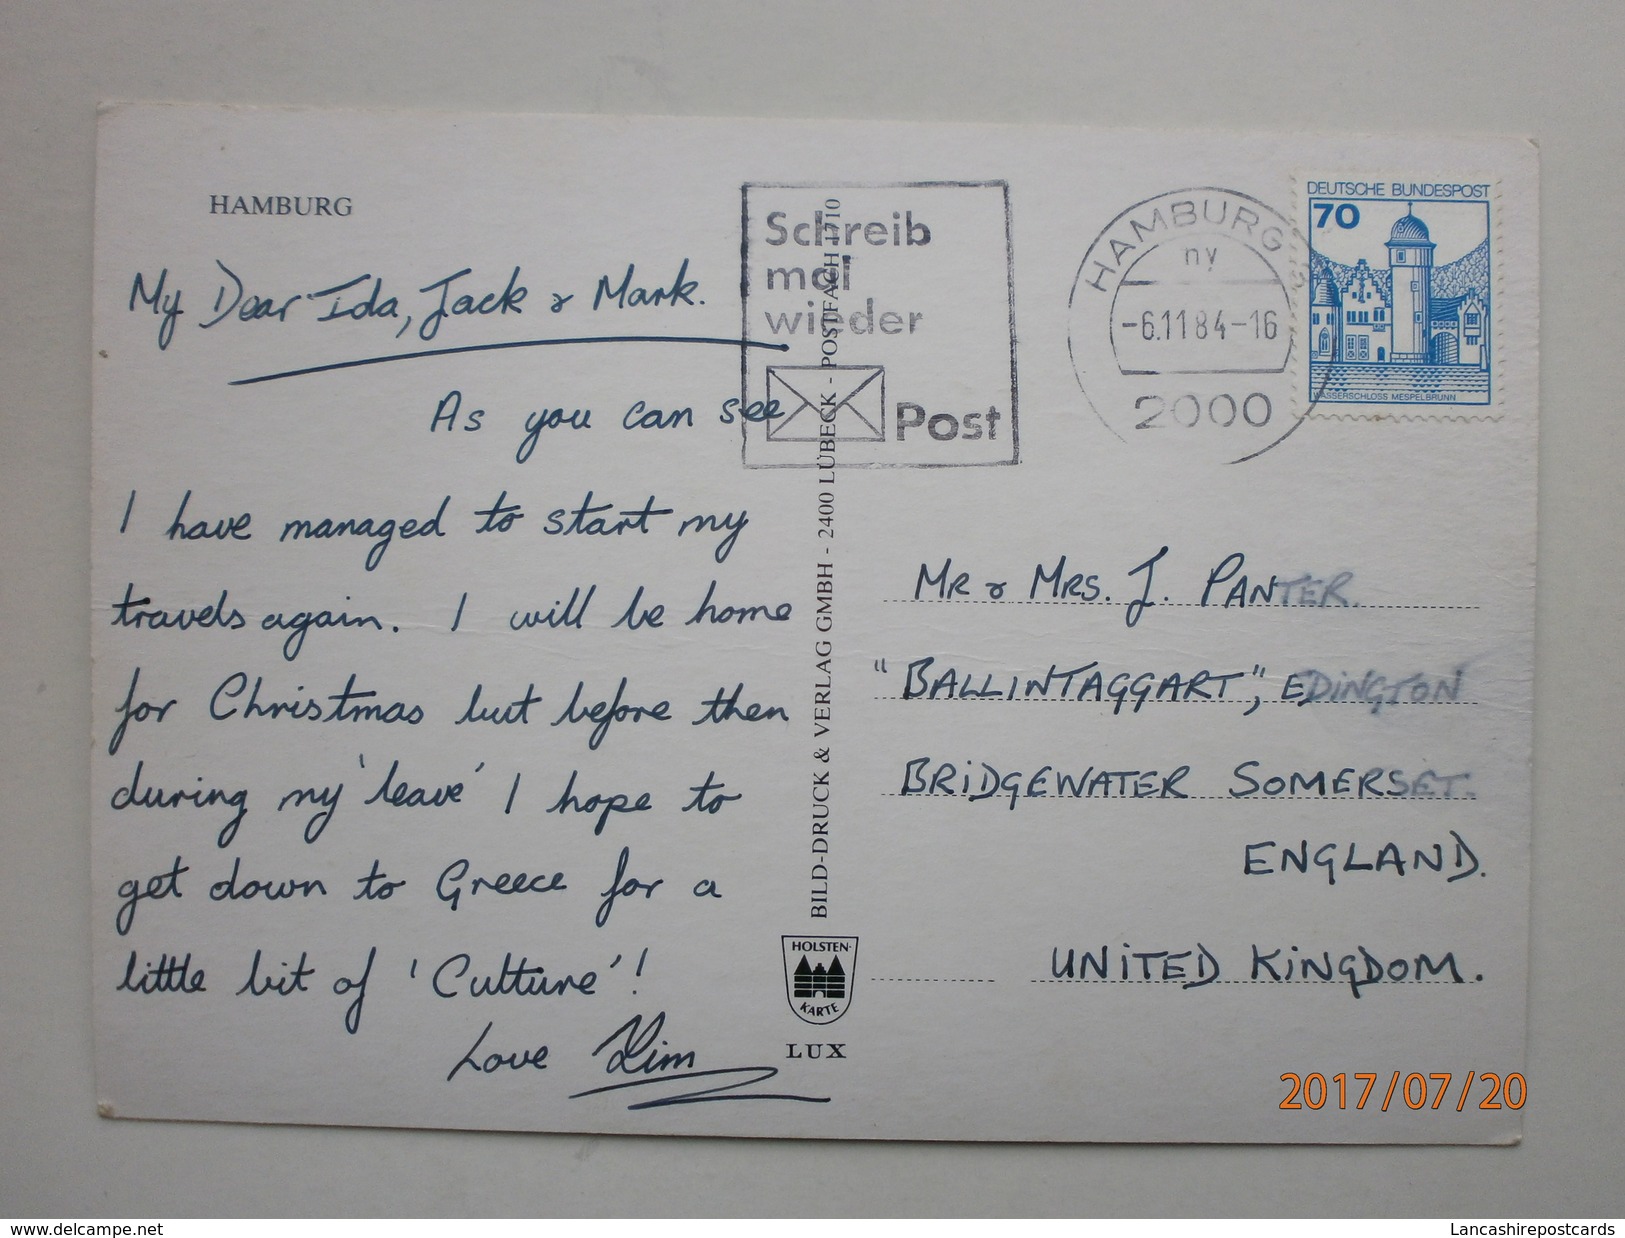 HAMBURG
My Dear Ida, Jack & Mark.
As you can see
I have managed to start my
travels again. I will be home
for Christmas but before then
during my 'leave' I hope to
get down to Greece for a
little bit of 'Culture'!
Love Kim
BILD-DRUCK & VERLAG GMBH - 2400 LÜBECK - POSTFACH 1710
HOLSTEN-
KARTE
LUX
Schreib
mal
wieder
Post
HAMBURG
ny
-6.11 84-16
2000
DEUTSCHE BUNDESPOST
70
WASSERSCHLOSS MESPELBRUNN
MR & MRS. J. PANTER.
"BALLINTAGGART", EDINGTON
BRIDGEWATER SOMERSET.
ENGLAND.
UNITED KINGDOM.
2017/07/20
www.delcampe.net
Lancashirepostcards